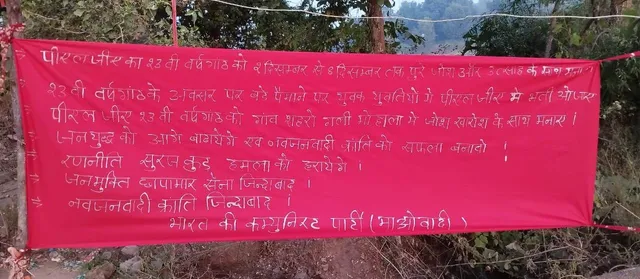 पीएलजीए का 23 वी वर्षगांठ को 2 दिसम्बर से 8 दिसम्बर तक पुरे जोश और उत्साह के साथ मनाए।
23 वी वर्षगांठ के अवसर पर बडे पैमाने पर युवक युवतियो पीएलजीए मे भर्ती
पीएलजीए 23 वी वर्षगांठ को गांव शहरो गली मोहाला मे जोश खरोश के साथ मनाए।
जनयुद्ध को आगे एव नवजनवादी क्रांति को सफल बनावो।
रणनीति सुरजकुंड हमला को हरायेगे।
जनमुक्ति छापामार सेना जिन्दाबाद।
नवजनवादी क्राति जिन्दाबाद।
भारत की कम्युनिस्ट पार्टी (माओवादी)